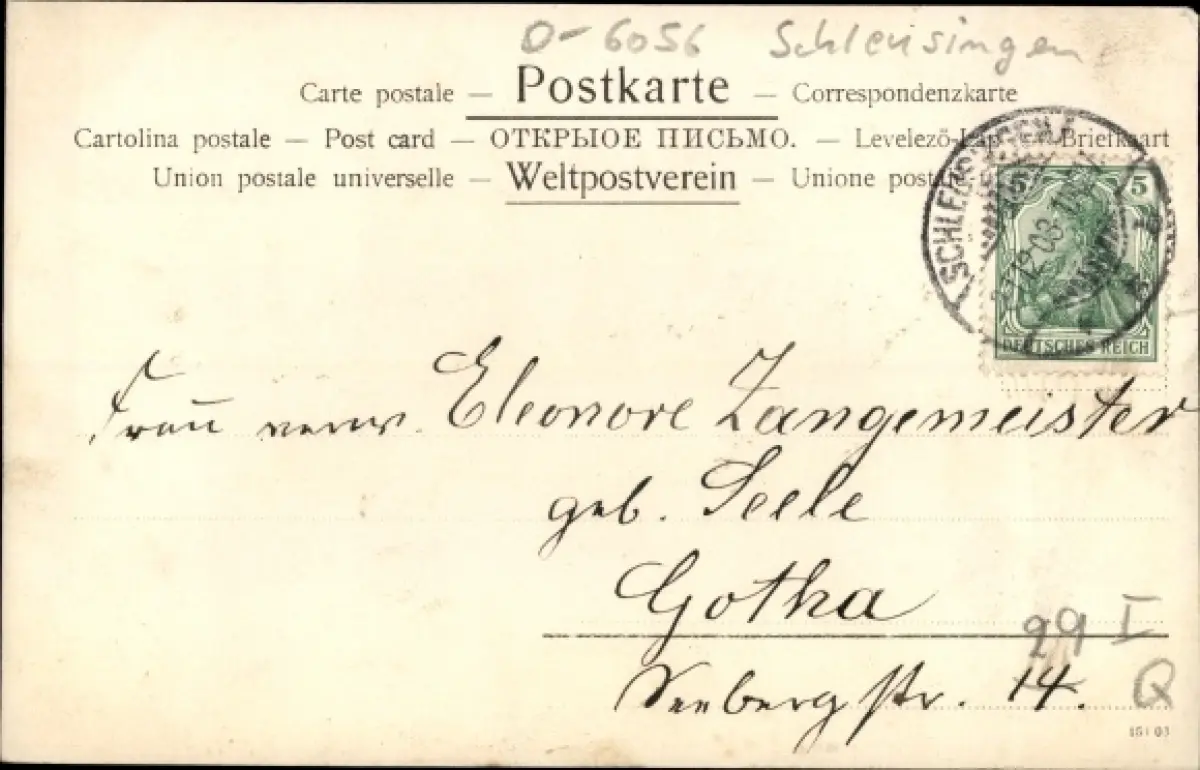 D-6056 Schleusingen
Carte postale — Postkarte — Correspondenzkarte
Cartolina postale — Post card — ОТКРЫОЕ ПИСЬМО. — Levelező-Lap — Briefkaart
Union postale universelle — Weltpostverein — Unione postale
5 5
SCHLEUSINGEN
12.03.
DEUTSCHES REICH
Frau verw. Eleonore Zangemeister
geb. Seele
Gotha
29 I
Seebergstr. 14.
Q
151 03